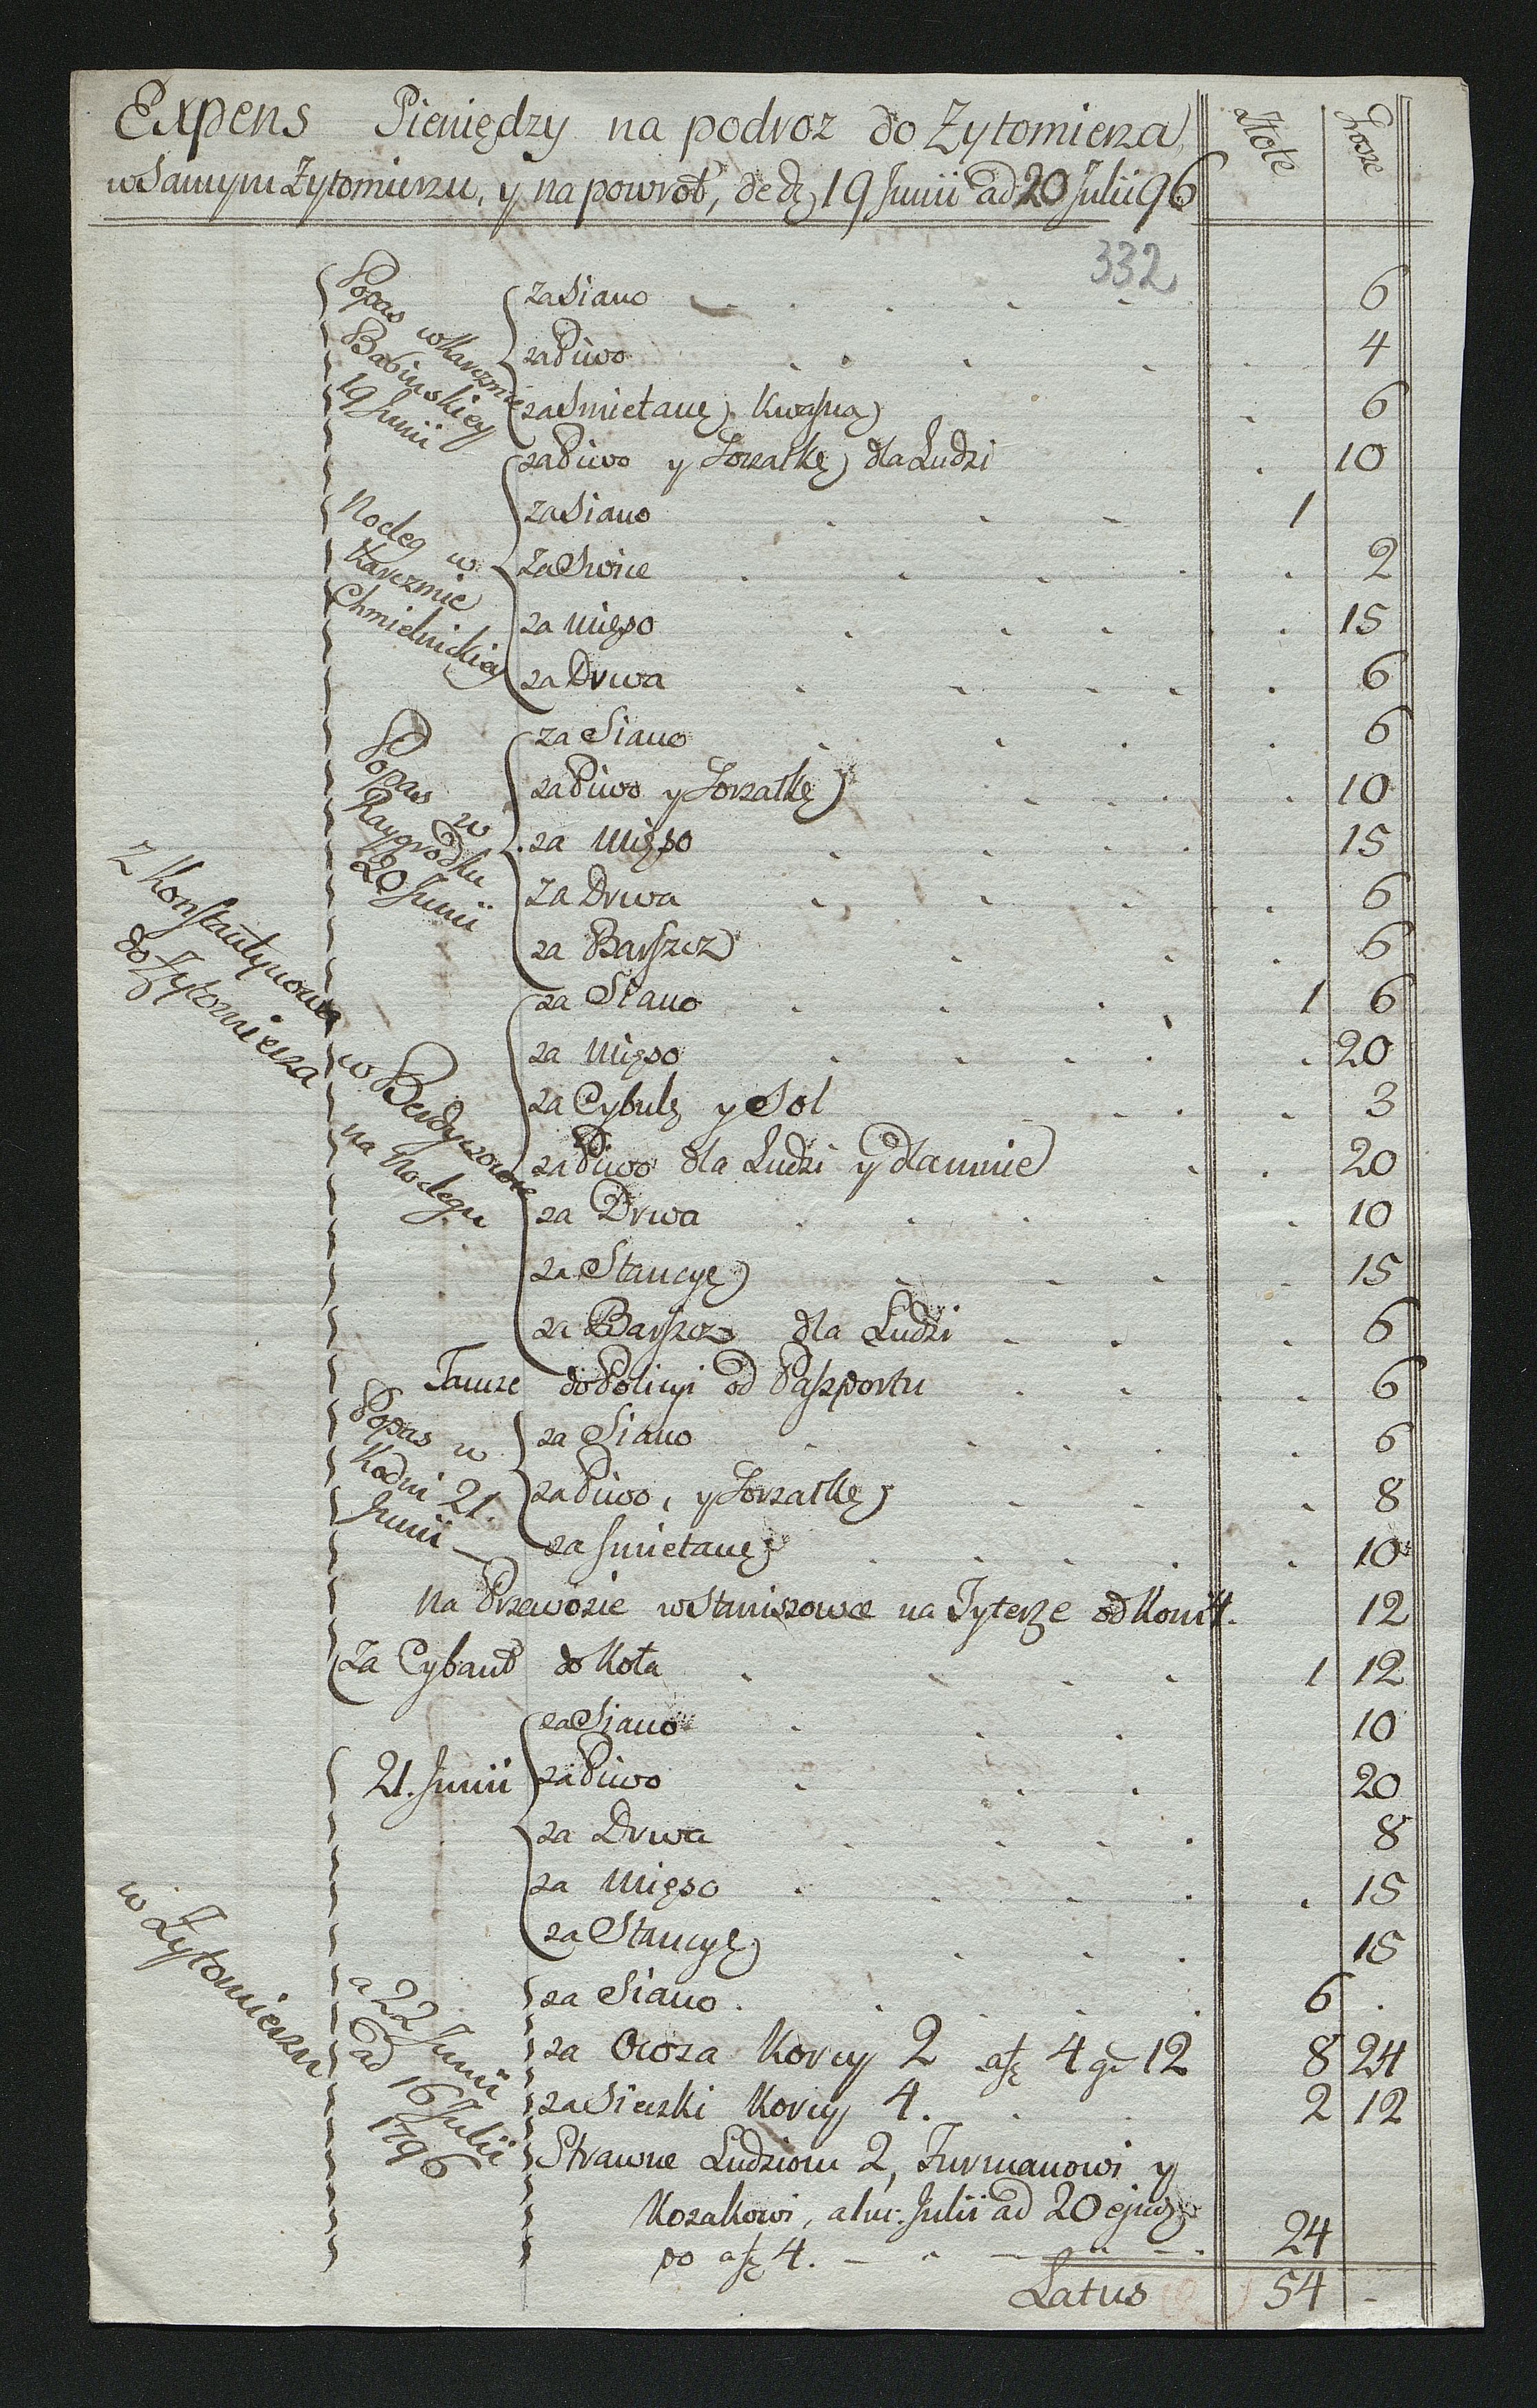 Expens Pieniędzy na podroz do Żytomierza,
w Samym Żytomierzu, y na powrót, de dę 19 Junii ad 20 Julii 96
Złote
Grosze
332
Popas w Karczmie
Babinskiey
19 Junii
za Siano 6
za Piwo 4
za Smietanę Kwasną 6
za Piwo y Gorzałkę dla Ludzi 10
Nocleg w
Karczmie
Chmielnickiey
za Siano 1
za Swice 2
za mięso 15
za Drwa 6
Popas w
Raygrodku
20 Junii
za Siano 6
za Piwo y Gorzałkę 10
za Mięso 15
za Drwa 6
za Barszcz 6
z Konstantynowa
do Żytomierza
w Berdyczowie
na Noclegu
za Siano 1 6
za Mięso 20
za Cybulę y Sol 3
za Piwo dla Ludzi y dla mnie 20
za Drwa 10
za Stancyę 15
za Barszcz dla Ludzi 6
Tamze do Policyi od Paszportu 6
Popas w
Kodni 21.
Junii
za Siano 6
za Piwo, y Gorzałkę 8
za smietanę 10
na Przewozie w Staniszowce na Tyterze od Koni 4. 12
za Cybant do Koła 1 12
w Żytomierzu
21. Junii
za Siano 10
za Piwo 20
za Drwa 8
za Mięso 15
za Stancyę 15
a 22 Junii
ad 16 Julii
1796
za Siano 6
za Owsa Korcy 2 a 4 gr 12 8 24
za Sieczki Korcy 4. 2 12
Strawne Ludziom 2, Furmanowi y
Kozakowi, Julii ad 20 ejusd
po 4. 24
Latus 54 -